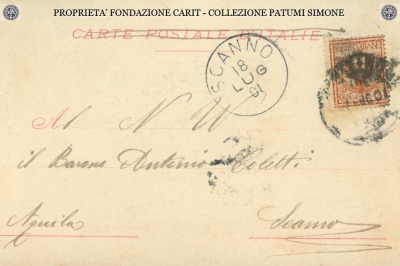 PROPRIETA' FONDAZIONE CARIT - COLLEZIONE PATUMI SIMONE
CARTE POSTALE D'ITALIE
SCANNO
18
LUG
01
Al N W
il Barone Antonio Coletti
Aquila Scanno